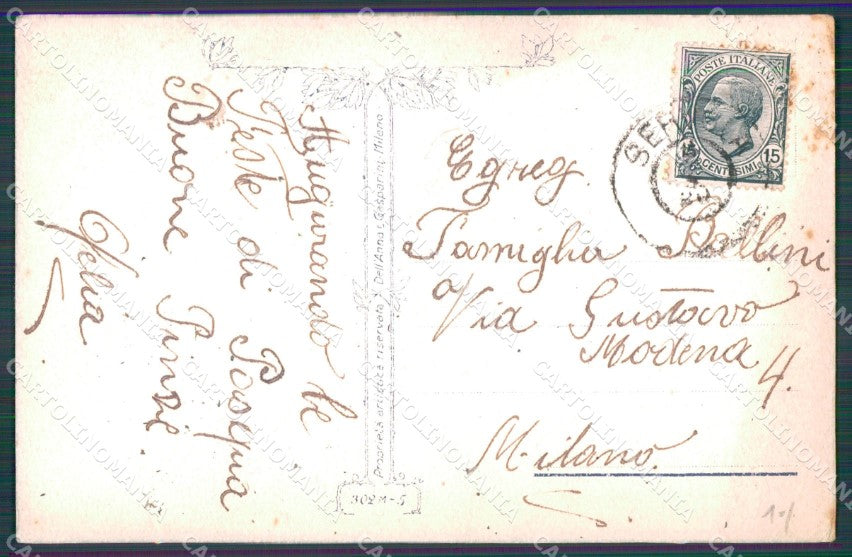 Augurando le
Feste di Pasqua
Buone
Velia
Proprietà artistica riservata Dell'Anna e Gasparini, Milano
302M-5
POSTE ITALIANE
CENTESIMI 15
Egreg
Famiglia Bellini
Via Gustavo
Modena 4.
Milano
CARTOLINOMANIA